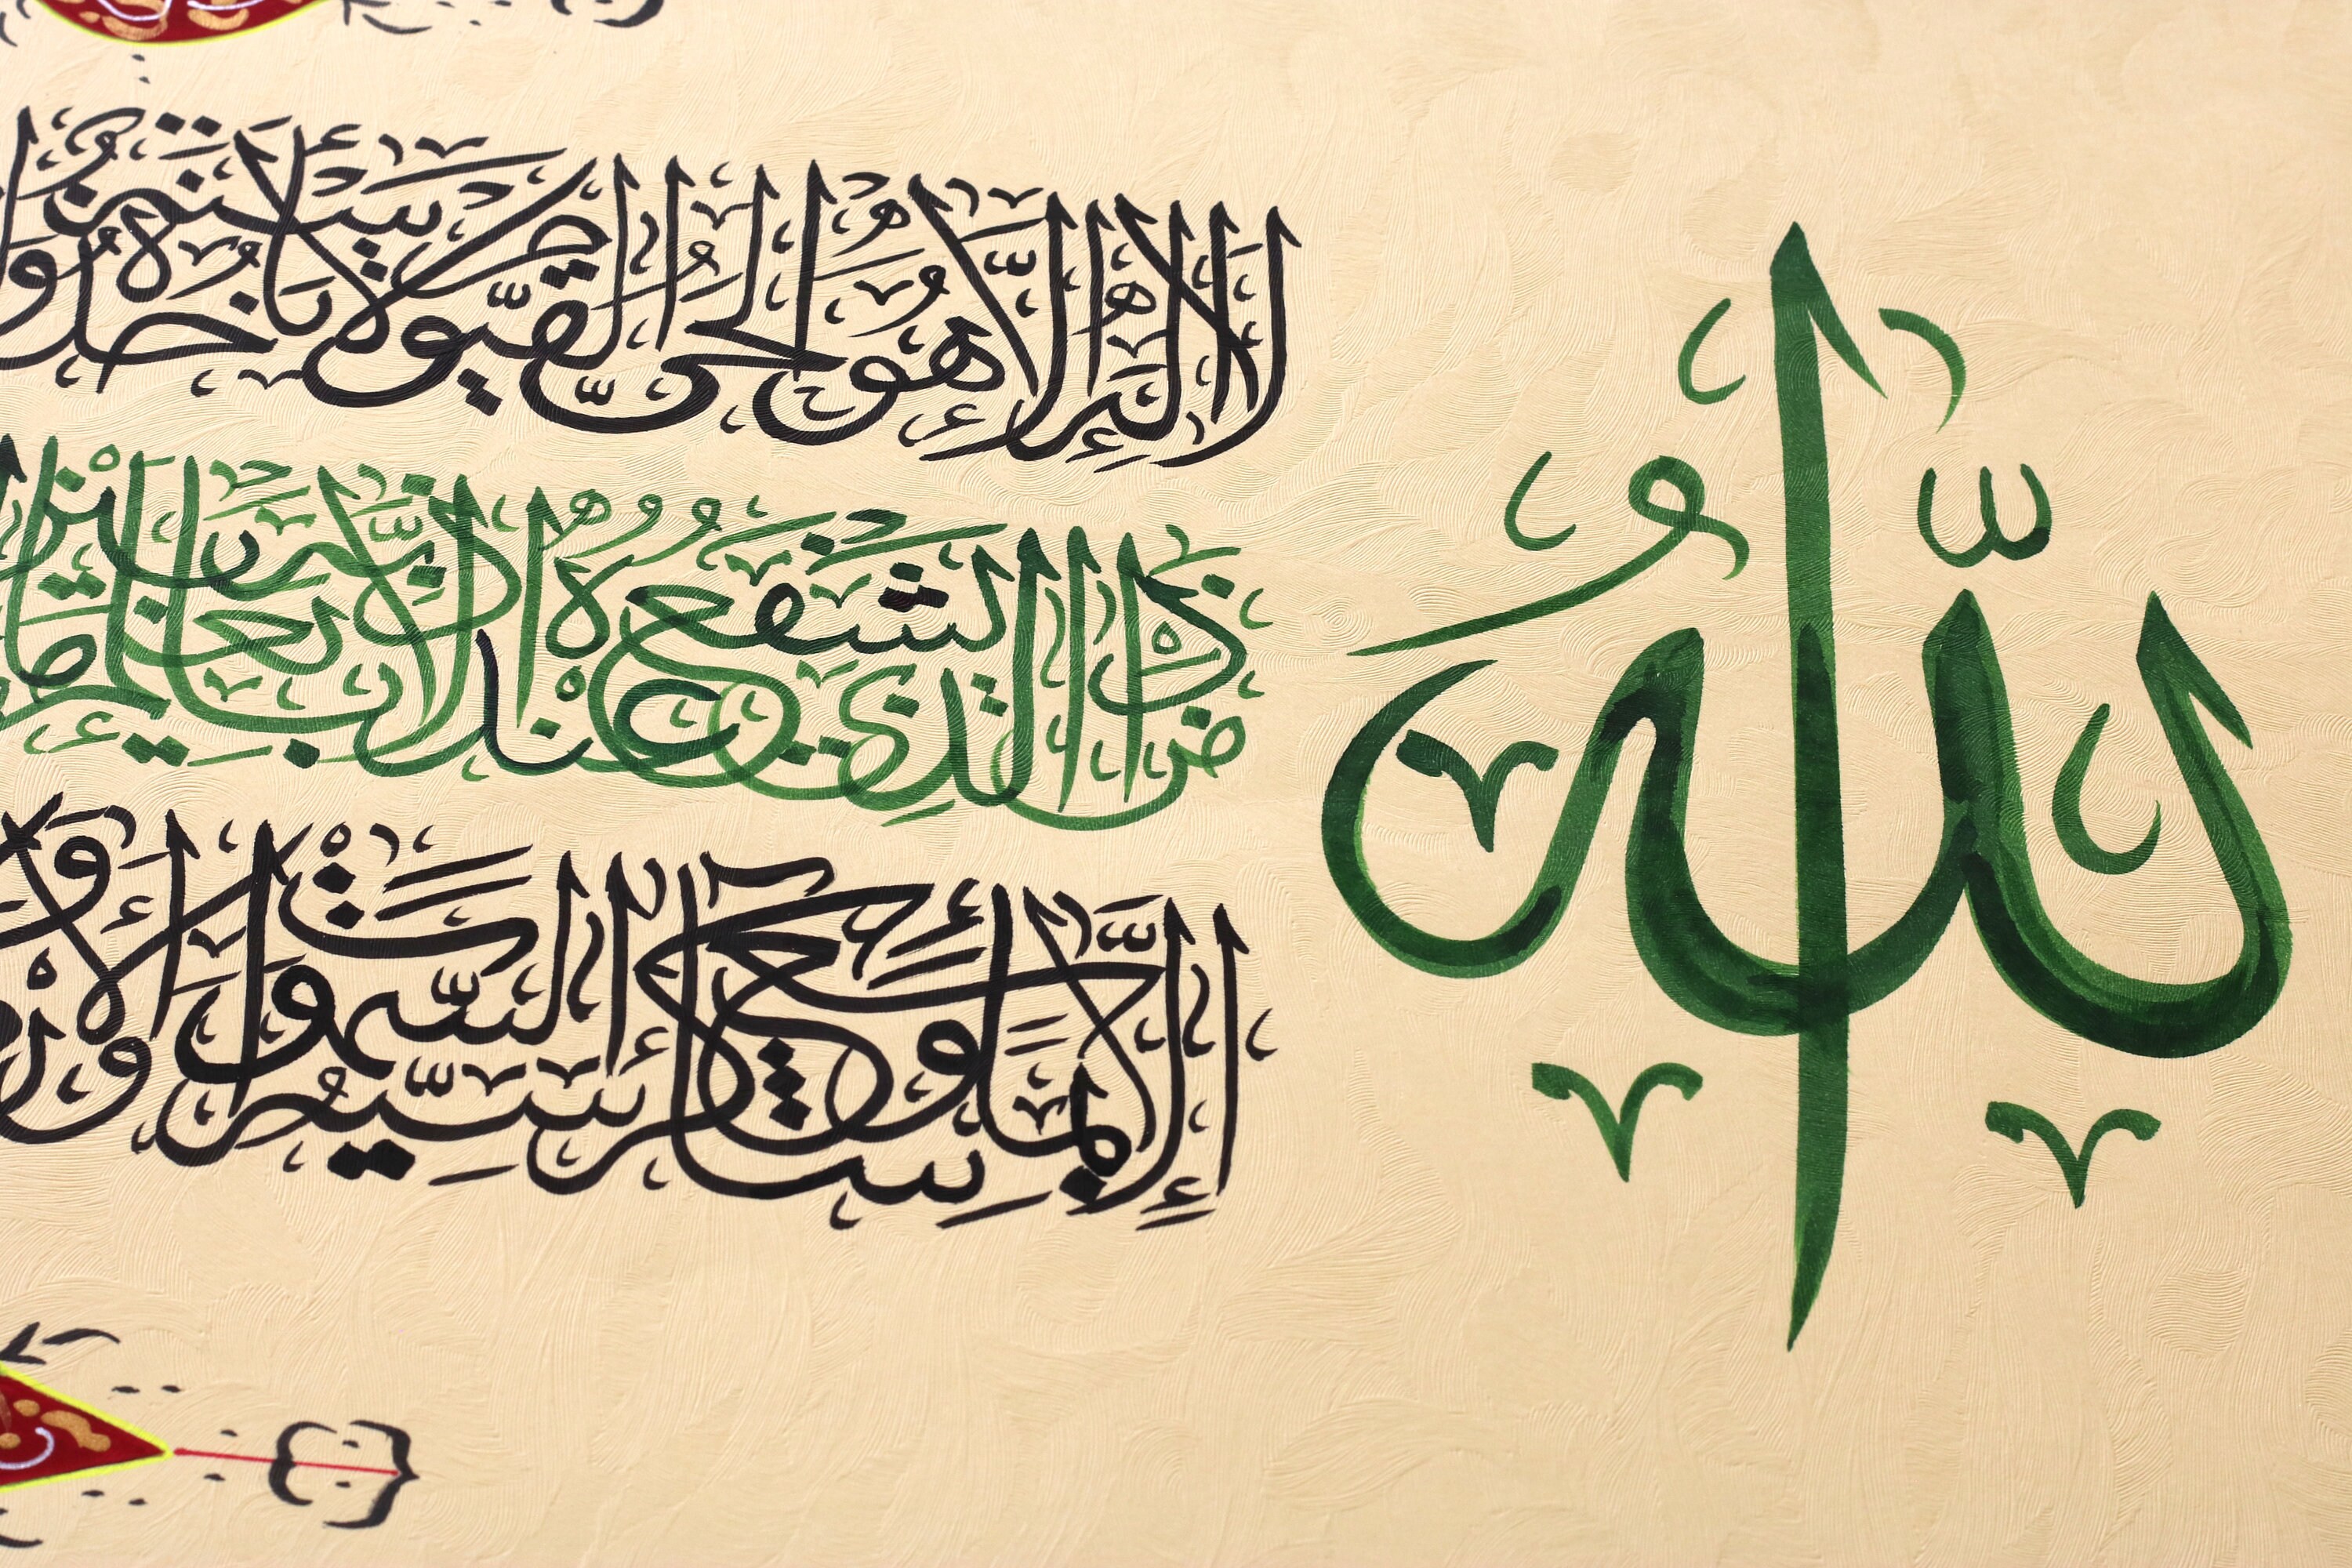 اللّٰهُ
لَا إِلٰهَ إِلَّا هُوَ الْحَيُّ الْقَيُّومُ لَا تَأْخُذُهُ سِنَةٌ وَلَا
ذَا الَّذِي يَشْفَعُ عِنْدَهُ إِلَّا بِإِذْنِهِ يَعْلَمُ مَا
إِلَّا بِمَا شَاءَ وَسِعَ كُرْسِيُّهُ السَّمٰوَاتِ وَالْأَرْضَ وَ